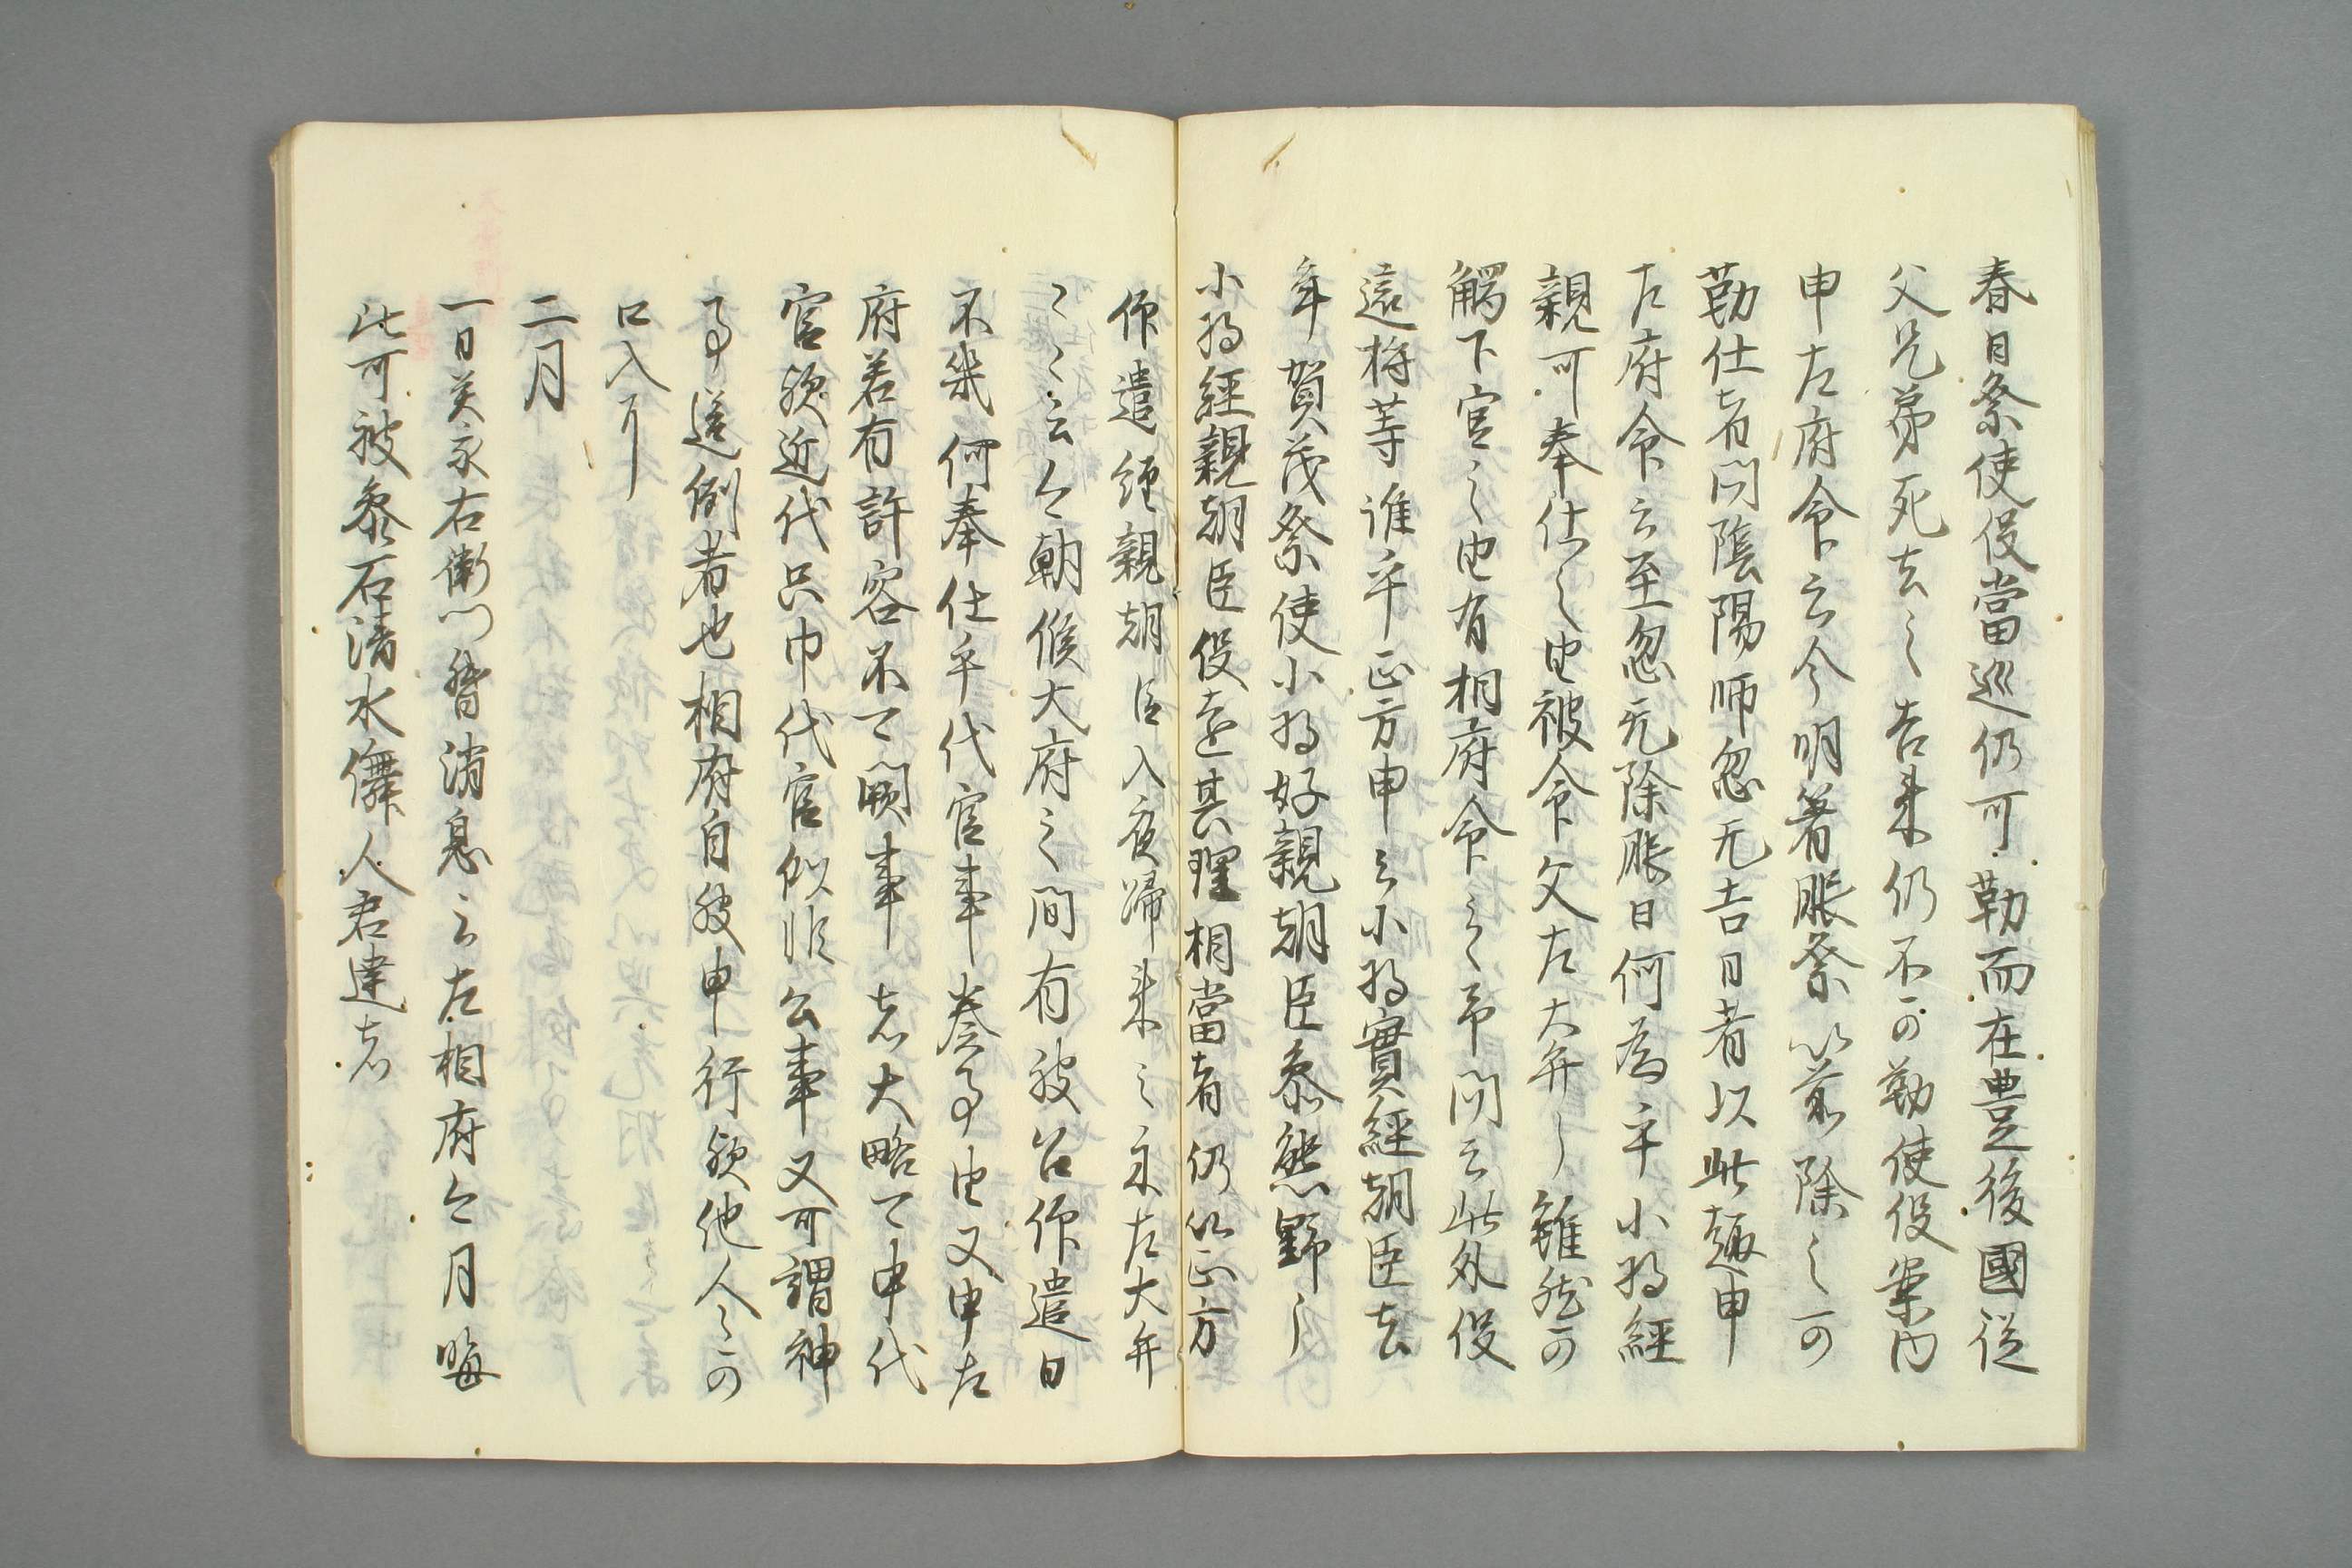 春日祭使役當巡仍可勤而在豊後國従
父兄弟死去之告来仍不可勤使役案内
申左府令云今明著服祭以前除之可
勤仕者問陰陽師忽无吉日者以此趣申
左府令云至忽无除服日何為乎小将經
親可奉仕之由被令父左大弁了雖然可
觸下官之由有相府命之予問云此外役
遠将等誰乎正方申云小将實經朝臣去
年賀茂祭使小将好親朝臣参熊野了
小将經親朝臣役遠其理相當者仍以正方
仰遣經親朝臣入夜帰来云示左大弁
之云今朝候大府之間有被召仰遣日
不幾何奉仕乎代官事奏事由又申左
府若有許容不可闕事者大略可申代
官欤近代只巾代官似非公事又可謂神
事違例者也相府自被申行欤他人之可
口入耳
二月
一日美永右衛門督消息云左相府今月晦
比可被参石清水儛人君達者